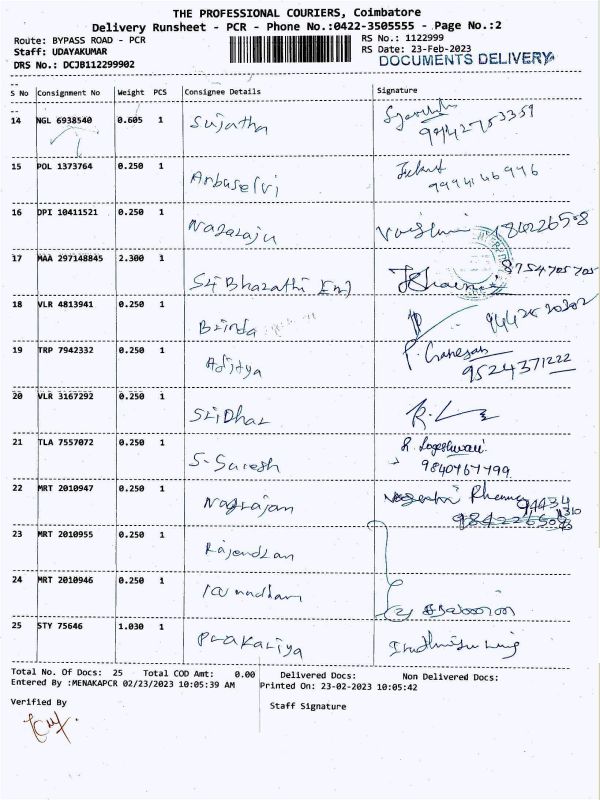 THE PROFESSIONAL COURIERS, Coimbatore
Delivery Runsheet - PCR - Phone No.:0422-3505555 - Page No.:2
Route: BYPASS ROAD - PCR
RS No.: 1122999
Staff: UDAYAKUMAR
RS Date: 23-Feb-2023
DRS No.: DCJB112299902
DOCUMENTS DELIVERY
S No Consignment No Weight PCS Consignee Details Signature
14 NGL 6938540 0.605 1 Sujatha
15 POL 1373764 0.250 1 Anbuselvi
16 DPI 10411521 0.250 1 Nagaraju
17 MAA 297148845 2.300 1 Sri Bharathi
8754705705
18 VLR 4813941 0.250 1 Brinda
19 TRP 7942332 0.250 1 Aditya P. Ganesan
9524371222
20 VLR 3167292 0.250 1 SriDhar
21 TLA 7557072 0.250 1 S. Suresh R. Logeshwari
9840767799
22 MRT 2010947 0.250 1 Nagrajan
23 MRT 2010955 0.250 1 Rajendran
24 MRT 2010946 0.250 1
25 STY 75646 1.030 1
Total No. Of Docs: 25 Total COD Amt: 0.00 Delivered Docs: Non Delivered Docs:
Entered By :MENAKAPCR 02/23/2023 10:05:39 AM Printed On: 23-02-2023 10:05:42
Verified By
Staff Signature